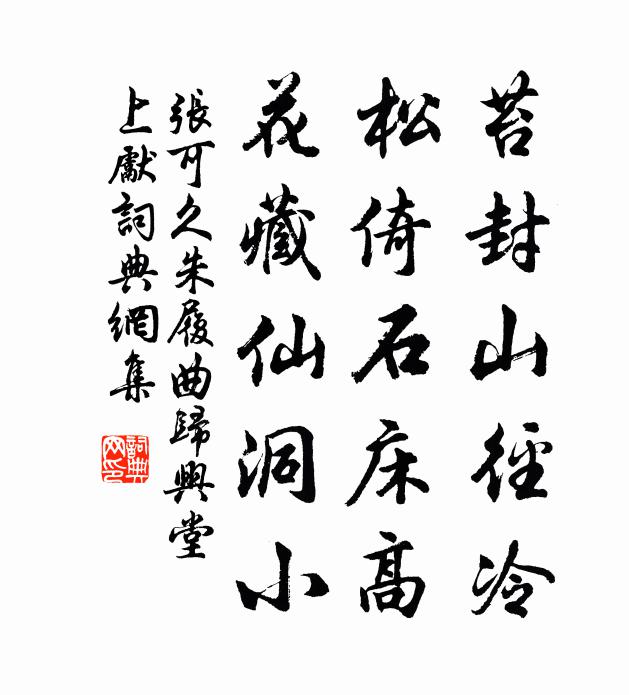 苔封山徑冷
松倚石床高
花藏仙洞小
張可久朱履曲歸興堂
上獻詞典網集
詞典网印